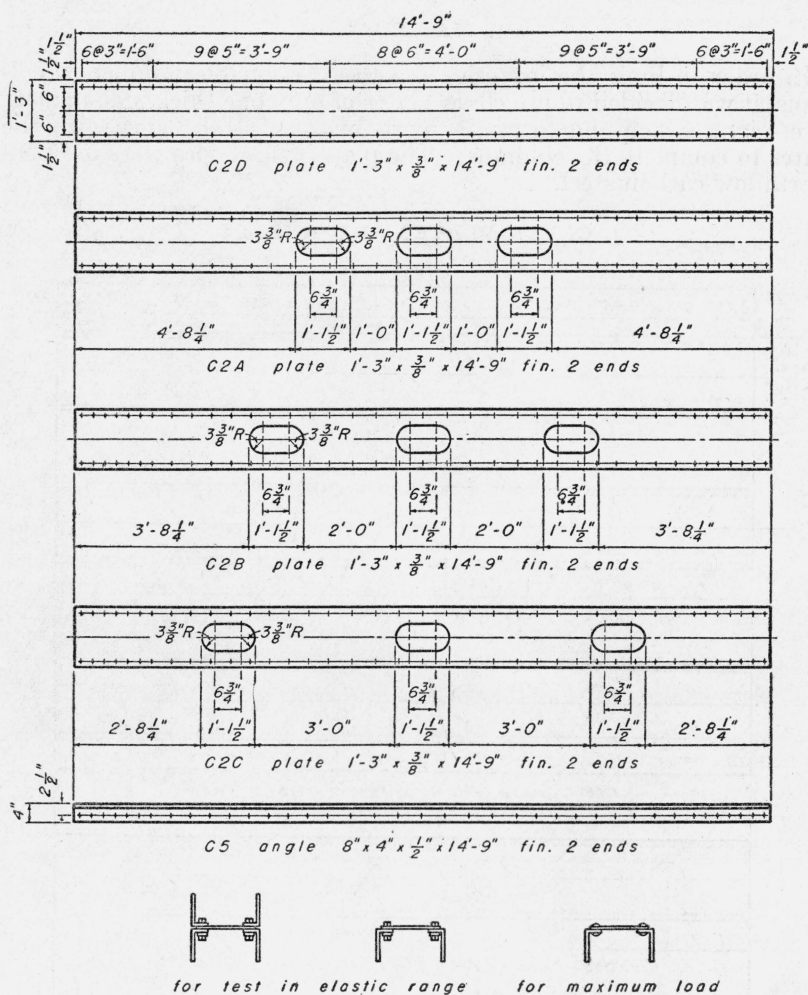 14'-9"
1 1/2" 6@3"=1'-6" 9@5"=3'-9" 8@6"=4'-0" 9@5"=3'-9" 6@3"=1'-6" 1 1/2"
1'-3" 6" 6" 1 1/2"
C2D plate 1'-3" x 3/8" x 14'-9" fin. 2 ends
3 3/8" R 3 3/8" R
6 3/4" 6 3/4" 6 3/4"
4'-8 1/4" 1'-1 1/2" 1'-0" 1'-1 1/2" 1'-0" 1'-1 1/2" 4'-8 1/4"
C2A plate 1'-3" x 3/8" x 14'-9" fin. 2 ends
3 3/8" R 3 3/8" R
6 3/4" 6 3/4" 6 3/4"
3'-8 1/4" 1'-1 1/2" 2'-0" 1'-1 1/2" 2'-0" 1'-1 1/2" 3'-8 1/4"
C2B plate 1'-3" x 3/8" x 14'-9" fin. 2 ends
3 3/8" R 3 3/8" R
6 3/4" 6 3/4" 6 3/4"
2'-8 1/4" 1'-1 1/2" 3'-0" 1'-1 1/2" 3'-0" 1'-1 1/2" 2'-8 1/4"
C2C plate 1'-3" x 3/8" x 14'-9" fin. 2 ends
4" 2 1/2"
C5 angle 8" x 4" x 1/2" x 14'-9" fin. 2 ends
for test in elastic range for maximum load